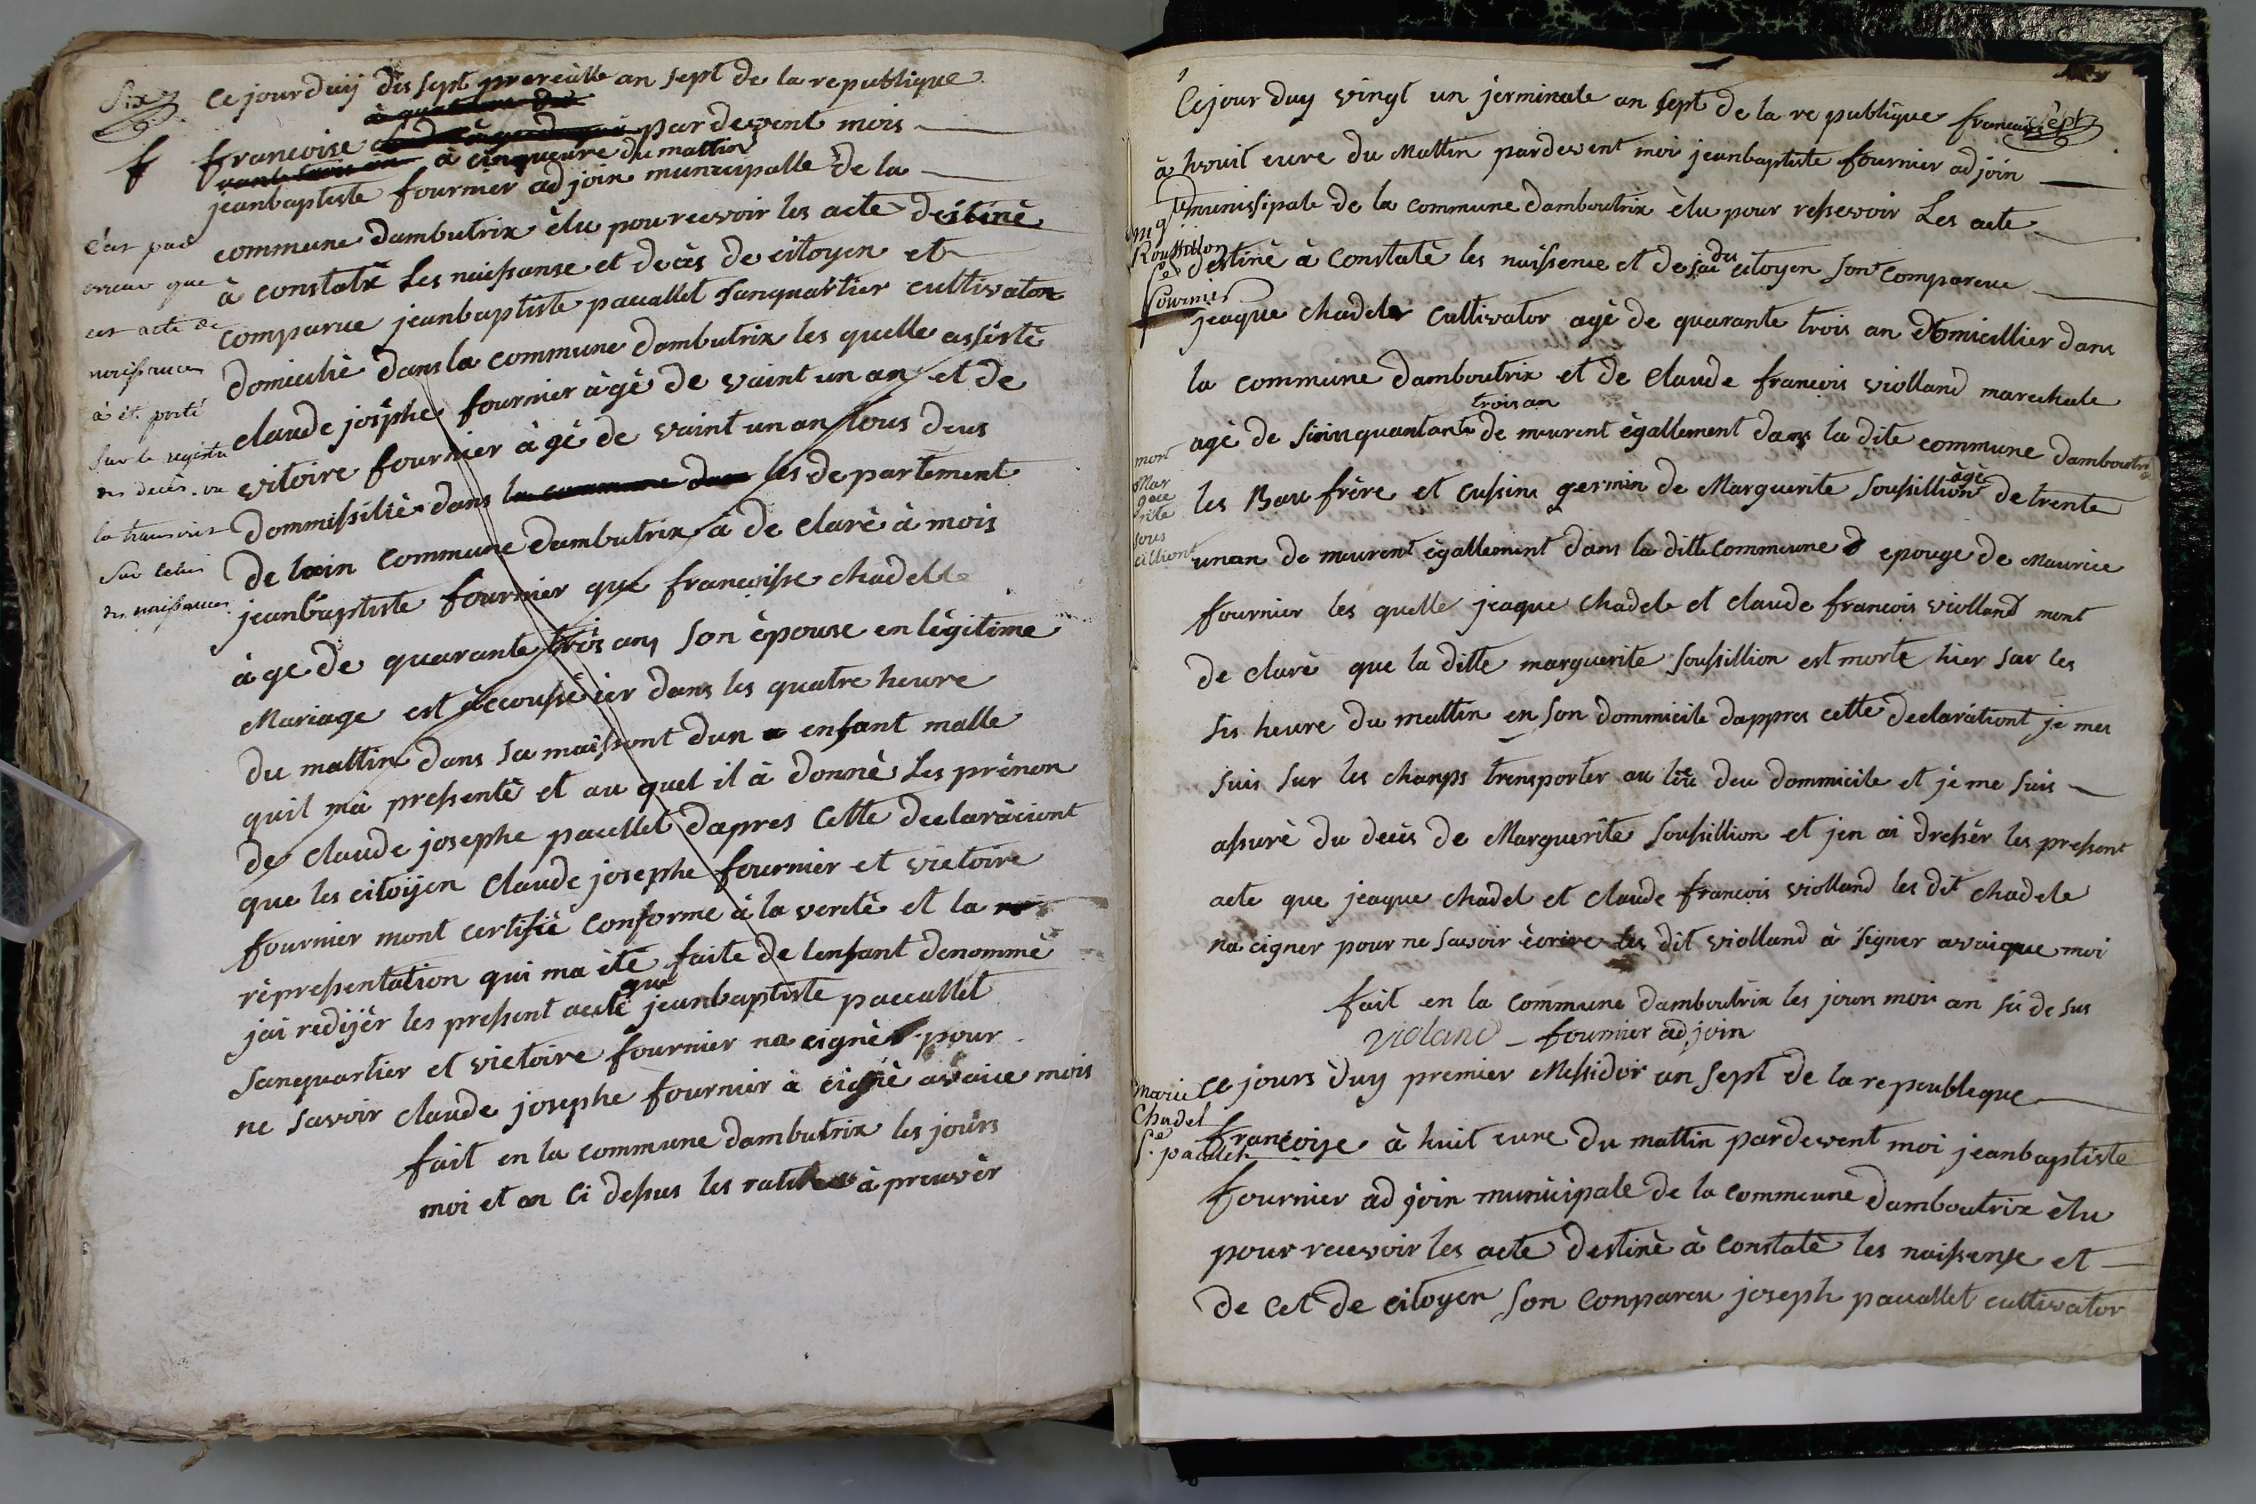 Six
Ce jourduij dis sept prereülle an sept de la republique
francoise pardevent mois
à cinqueure du mattin
jeanbaptiste fournier adjoin municipalle de la
commune dambutrix èlu pourecevoir les acte destinè
à constatér Les naissanse et decès de citoyen et
comparue jeanbaptiste pacallet sanquartier cultivator
domicilié dans la commune dambutrix les quelle assistè
claude josphe fournier àgè de vaint un an et de
vitoire fournier à gè de vaint un an tous deus
dommissiliè dans la commune dans les departement
de lain commune dambutrix à de clarè à mois
jeanbaptiste fournier que francoisse chadelle
àge de quarante trois ans son èpouse en lègitime
Mariage est accoussè ier dans les quatre heure
du mattin dans sa maissont dun enfant malle
quil mà pressentè et au quel il à donnè Les prènon
de claude josephe pacellet dapres Cette declaràcient
que les citoijen Claude josephe fournier et victoire
fournier mont certifiè conforme à la veritè et la
rèpressentation qui ma ète faite de lenfant denommè
jai redijèr les pressent acte que jeanbaptiste paccallet
Sanquartier et victoire fournier na cignè pour
ne savoir claude josephe fournier à cignè avaice mois
fait en la commune dambutrix les joùrs
moi et an ci dessus les à preuvèr
c'est par
erreur que
cet acte de
naissances
à ét. porté
sur le registre
des decès. on
la transcrit
sur celui
des naissances
Sept
Cejour duy vingt un jerminale an sept de la re publique francaise
à huit eure du Mattin pardevent moi jeanbaptiste fournier adjoin
munissipale de la commune damboutrix èlu pour ressevoir Les acte
destinè à Constatè les naissence et de du citoyen son comparcue
jeaque chadele Cultivator agè de quarante trois an domicillier dans
la commune damboutrix et de Claude francois violland marechale
agè de sinquantante trois an de meurent ègallement dans la dite commune damboutrix
les Bau frère et cussine germin de Marguerite Soussillion àgè de trente
unan de meurent ègallement dans la ditte commeune epouge de Maurice
fournier les quelle jeaque Chadele et claude francois violland mont
de clarè que la ditte marguerite soussillion est morte hier sur les
sis heure du mattin en son dommicile dappres cette declarátiont je mes
suis sur les champs trensporter au deu dommicile et je me suis
assurè du decès de Marguerite soussillion et jen ai dressèr les pressent
acte que jeaque chadel et claude francois violland les dit chadele
na cigner pour ne savoir ècrire les dit violland à signer avaique moi
fait en la commune damboutrix les jours mois an si de sus
violand fournier adjoin
mgte
Roussillon
fe
fournier
mort
Mar
gue
rite
sous
cilliont
Ce jours duy premier Messidor an sept de la repeublique
francoise à huit eure du mattin pardevent moi jeanbaptiste
fournier ad join municipale de la commeune damboutrix èlu
pour recevoir les acte destinè à constatè les naissense et
de cet de citoyen son conparcu joseph pacallet cultivator
marie
Chadel
fe pacalet